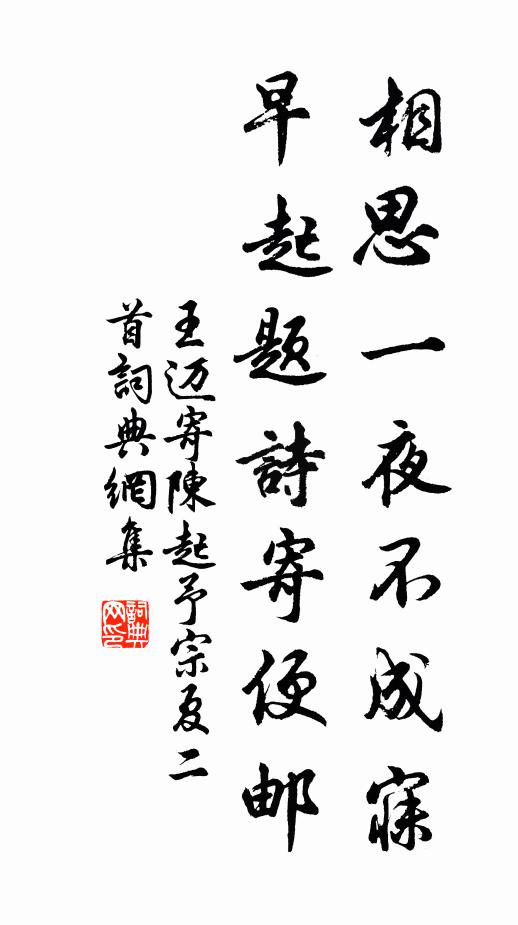 相思一夜不成寐
早起题詩寄便邮
王迈寄陳起予宗夏二
首詞典網集
詞典
网印